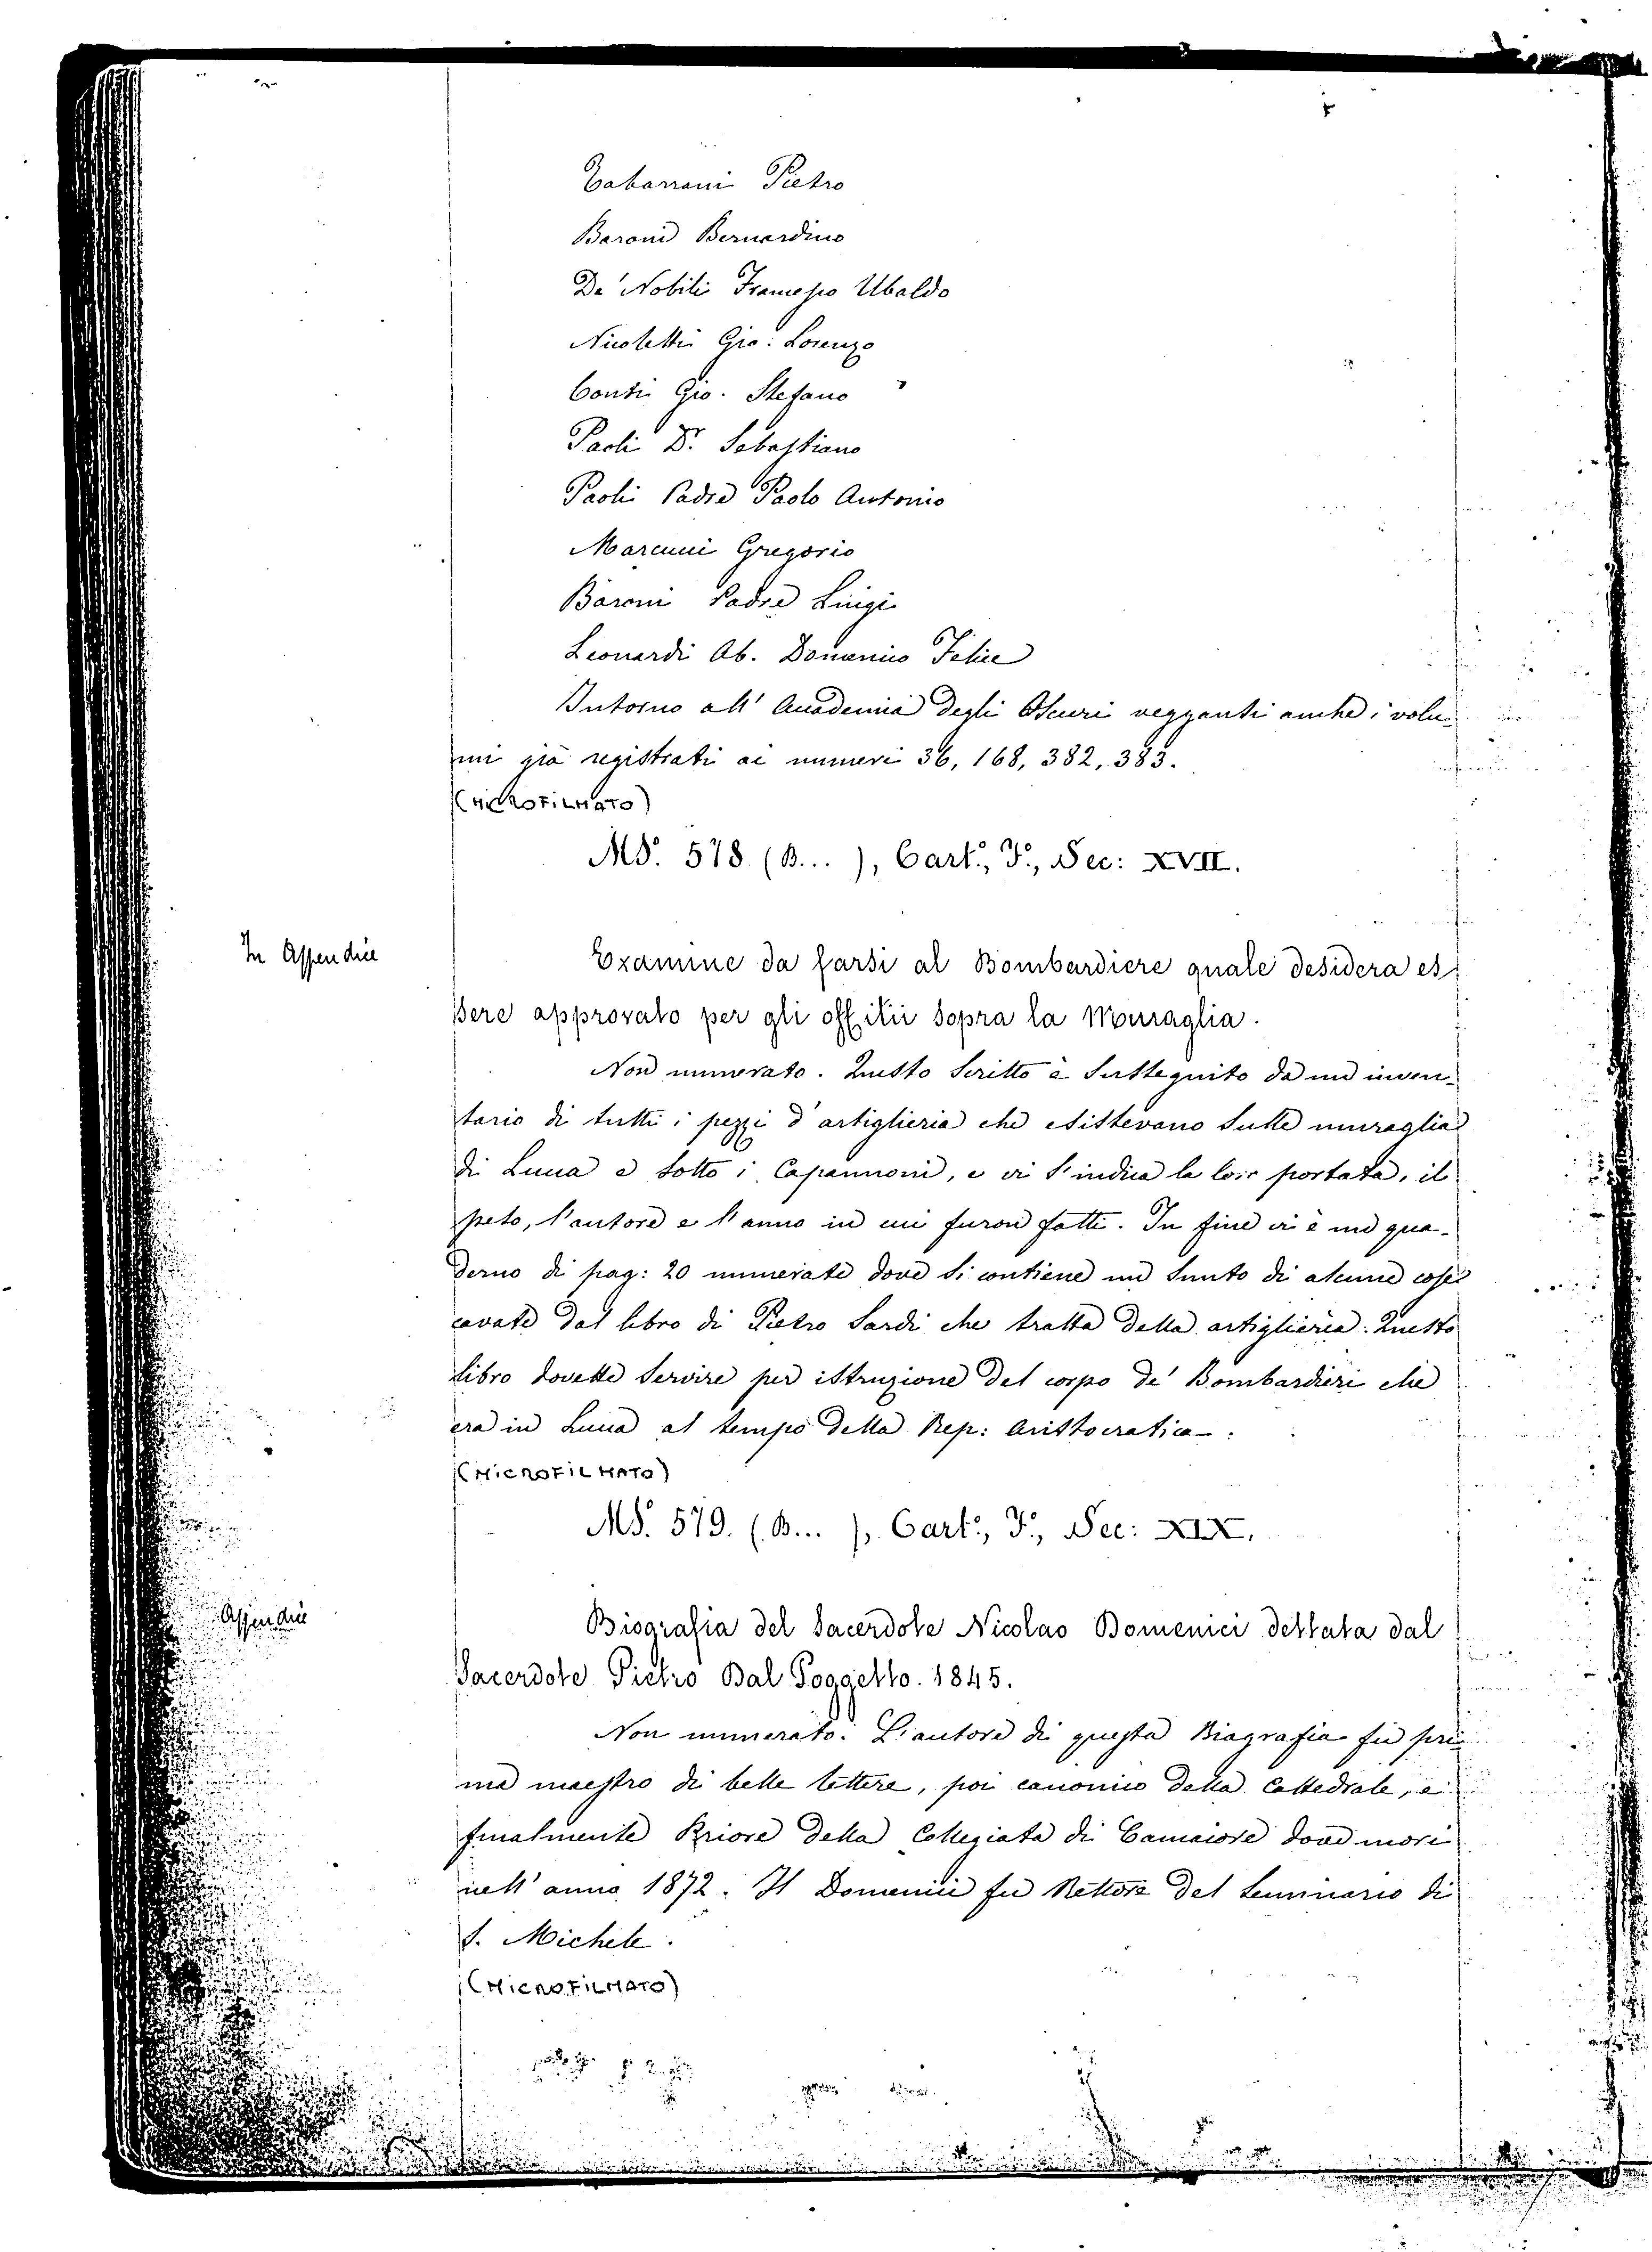 Tabarrani Pietro
Baroni Bernardino
De' Nobili Francesco Ubaldo
Nicoletti Gio: Lorenzo
Conti Gio. Stefano
Paoli Dr. Sebastiano
Paoli Padre Paolo Antonio
Marcucci Gregorio
Baroni Padre Luigi
Leonardi Ab. Domenico Felice
Intorno all' Accademia degli Oscuri veggansi anche i volu-
mi già registrati ai numeri 36, 168, 382, 383.
(MICROFILMATO)
MS. 578 (B... ), Cart:, F:, Sec: XVII.
In Appendice
Examine da farsi al Bombardiere quale desidera es-
sere approvato per gli offitii sopra la Muraglia.
Non numerato. Questo scritto è susseguito da un inven-
tario di tutti i pezzi d'artiglieria che esistevano sulle muraglie
di Lucca e sotto i Capannoni, e vi s'indica la loro portata, il
peso, l'autore e l'anno in cui furon fatti. In fine vi è un qua-
derno di pag: 20 numerate dove si contiene un sunto di alcune cose
cavate dal libro di Pietro Sardi che tratta della artiglieria. Questo
libro dovette servire per istruzione del corpo de' Bombardieri che
era in Lucca al tempo della Rep: Aristocratica.
(MICROFILMATO)
MS. 579. (B... ), Cart:, F:, Sec: XIX.
Appendice
Biografia del Sacerdote Nicolao Domenici dettata dal
Sacerdote Pietro Dal Poggetto. 1845.
Non numerato. L'autore di questa Biografia fu pri-
ma maestro di belle lettere, poi canonico della Cattedrale, e
finalmente Priore della Collegiata di Camaiore dove morì
nell' anno 1872. Il Domenici fu Rettore del Seminario di
S. Michele.
(MICROFILMATO)